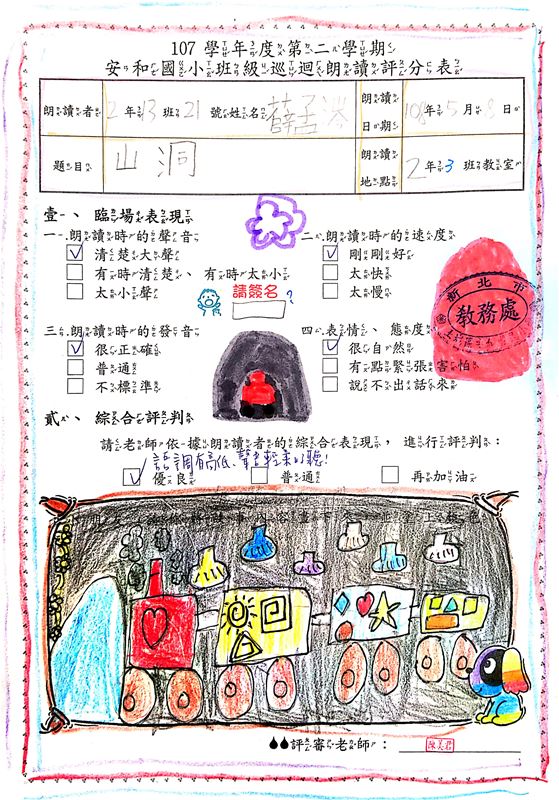 107 學年度第二學期
安和國小班級巡迴朗讀評分表
朗讀者 2 年 13 班 21 號 姓名 薛孟涔 朗讀日期 108 年 5 月 8 日
題目 山洞 朗讀地點 2 年 3 班教室
壹、臨場表現
一.朗讀時的聲音 二.朗讀時的速度
清楚大聲 剛剛好
有時清楚、有時太小 太快
太小聲 太慢
請簽名?
新北市
教務處
三.朗讀時的發音 四.表情、態度
很正確 很自然
普通 有點緊張害怕
不標準 說不出話來
貳、綜合評判
請老師依據朗讀者的綜合表現,進行評判:
語調有高低、聲音輕柔好聽!
優良 普通 再加油
評審老師: